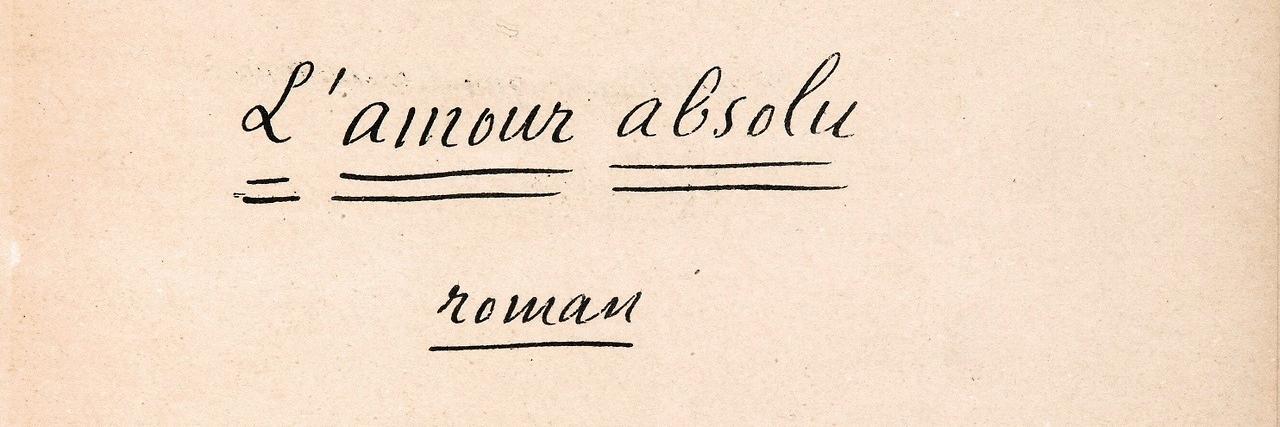 L'amour absolu
roman